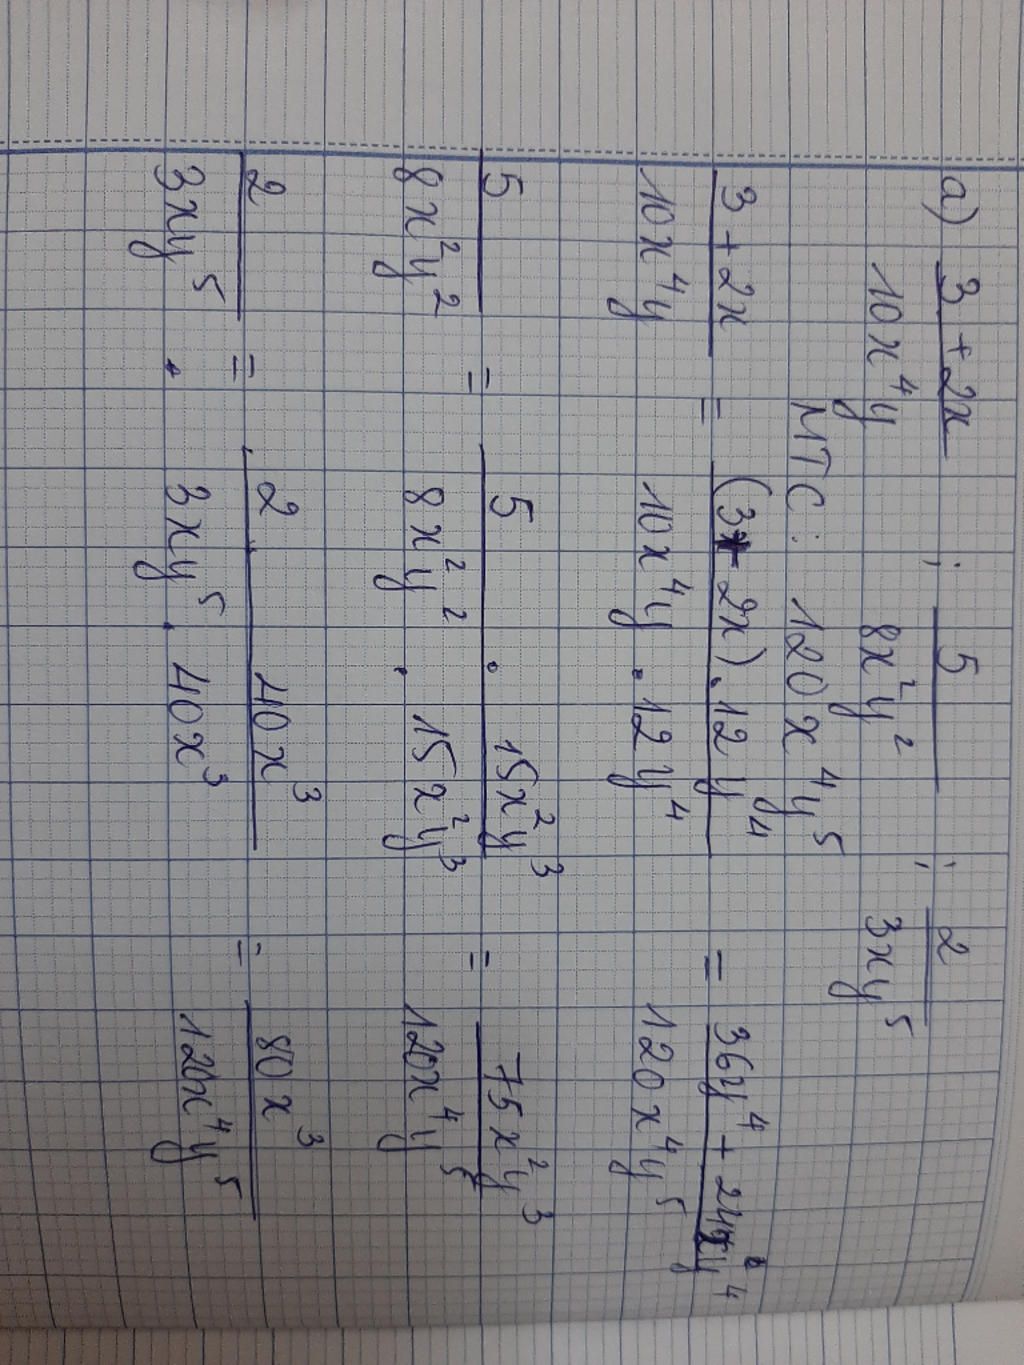 a) (3 + 2x)/(10x⁴y) ; 5/(8x²y²) ; 2/(3xy⁵)
MTC: 120x⁴y⁵
(3 + 2x)/(10x⁴y) = ((3 + 2x).12y⁴)/(10x⁴y.12y⁴) = (36y⁴ + 24xy⁴)/(120x⁴y⁵)
5/(8x²y²) = (5 . 15x²y³)/(8x²y² . 15x²y³) = (75x²y³)/(120x⁴y⁵)
2/(3xy⁵) = (2 . 40x³)/(3xy⁵ . 40x³) = (80x³)/(120x⁴y⁵)